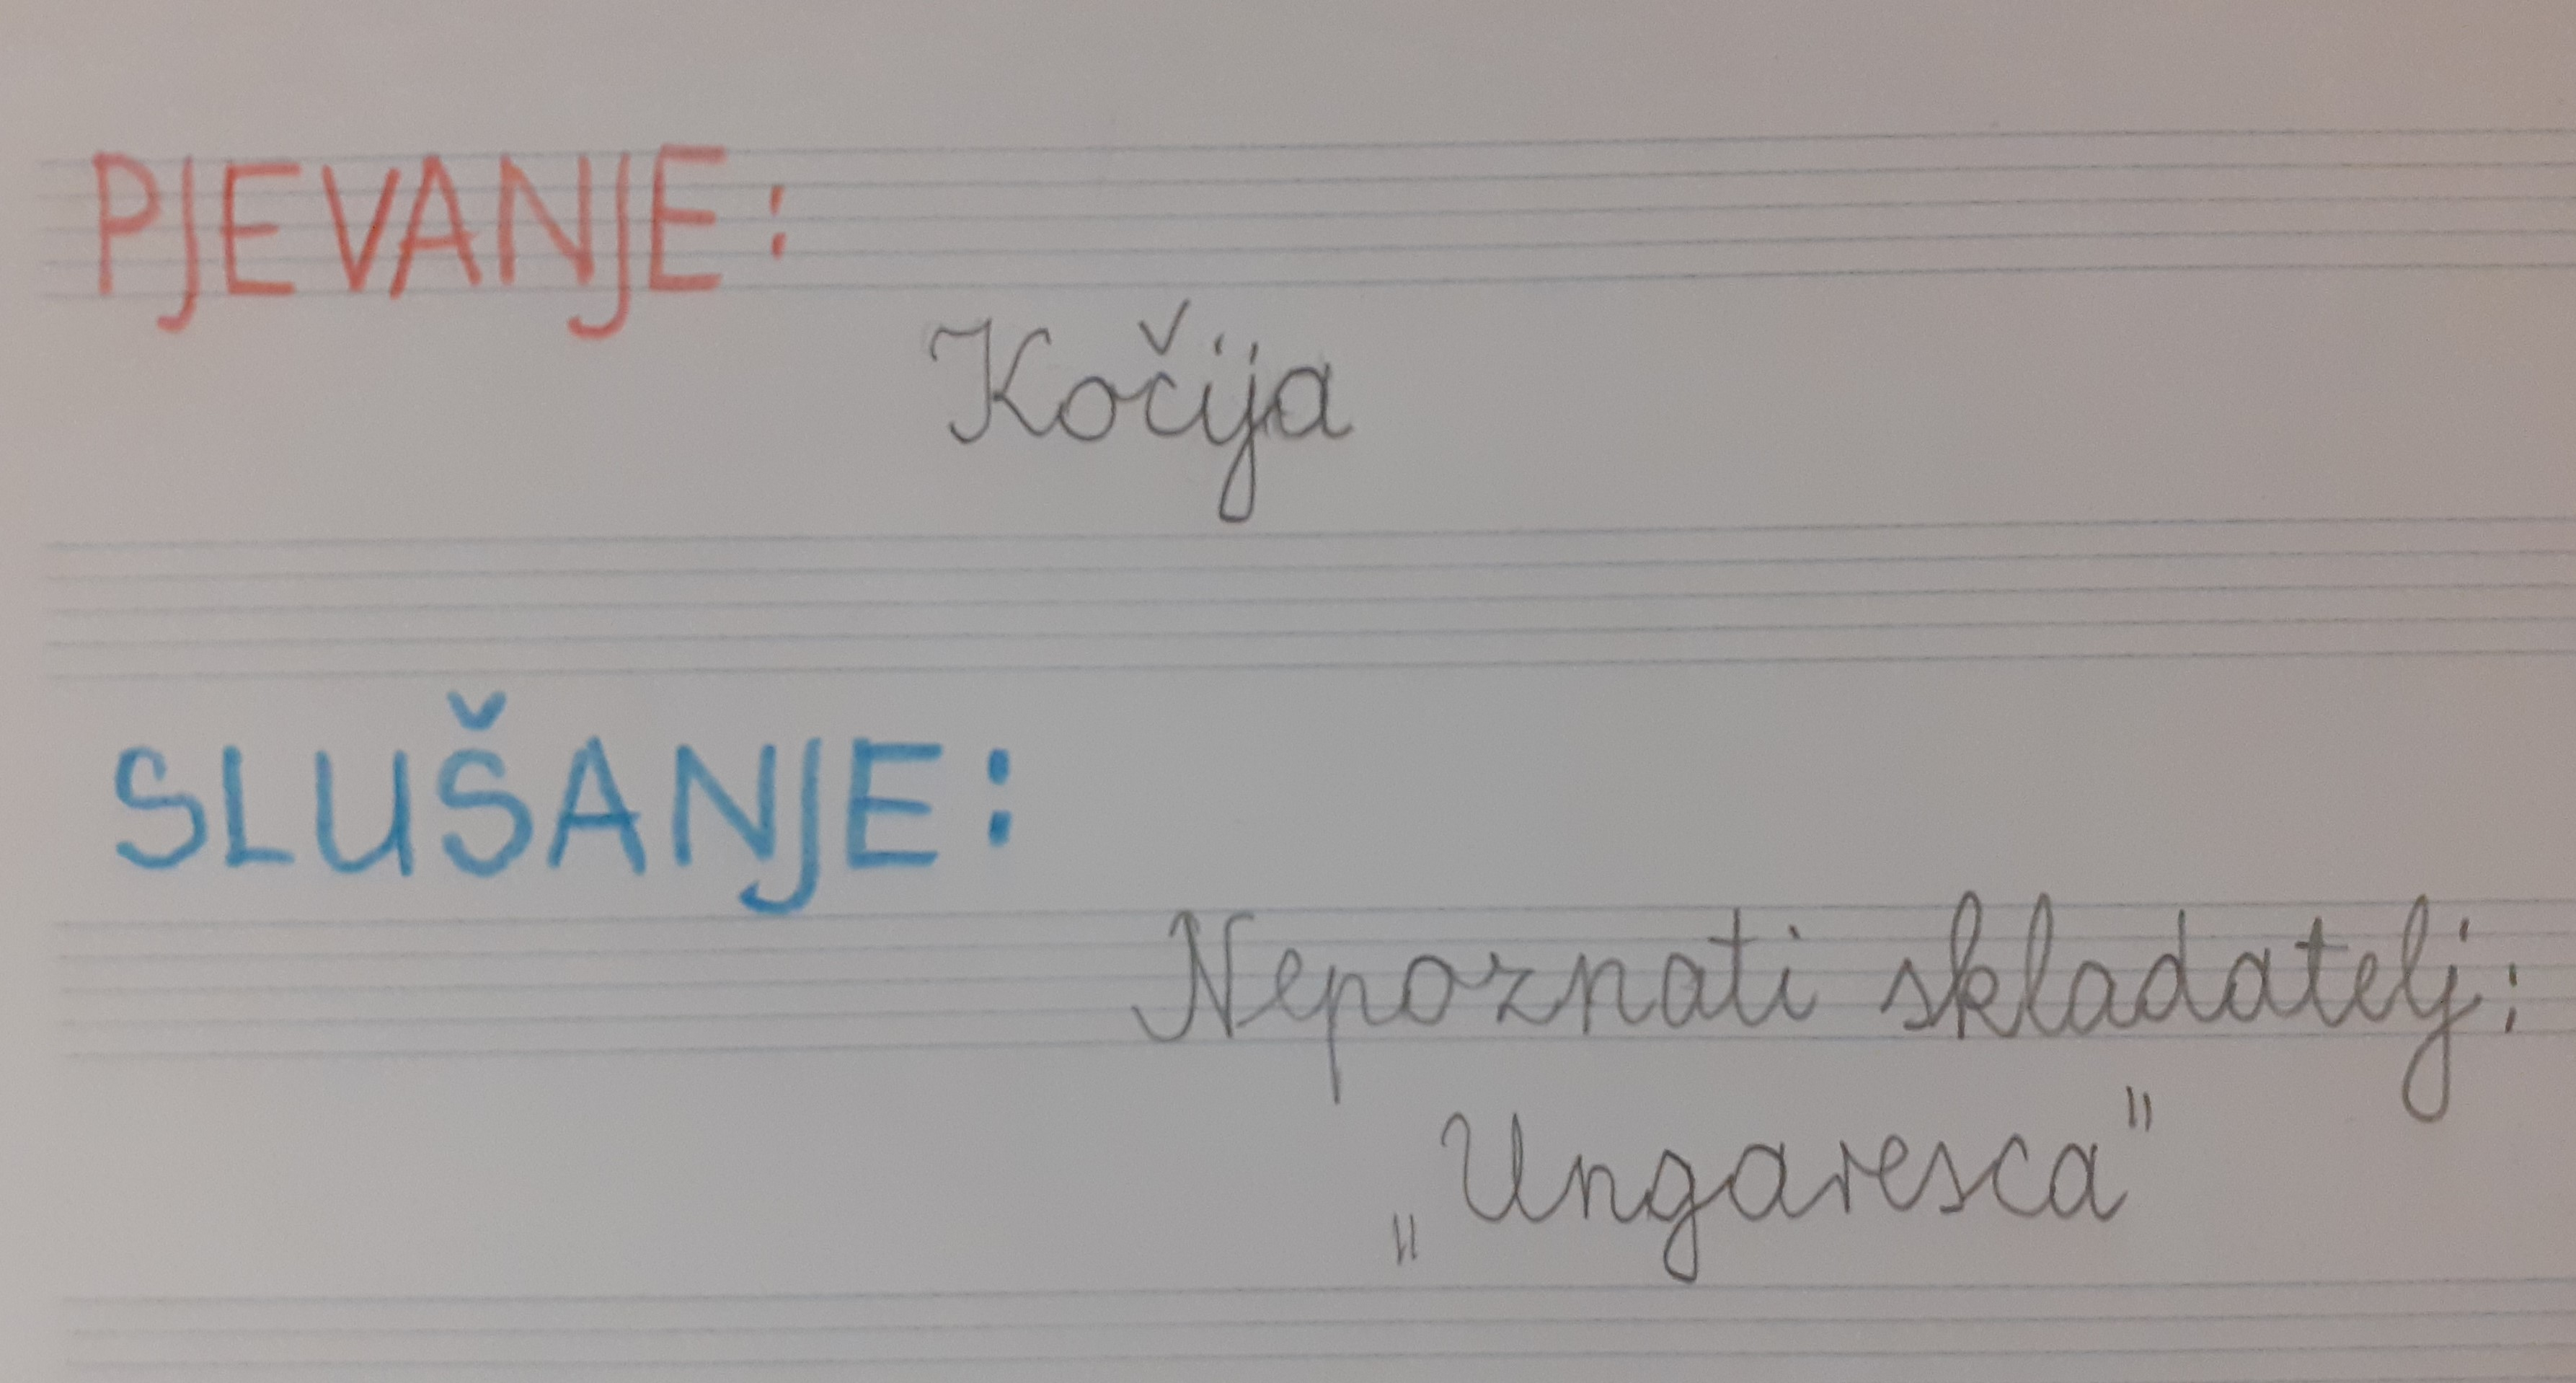 PJEVANJE:
Kočija
SLUŠANJE:
Nepoznati skladatelj:
„Ungaresca"